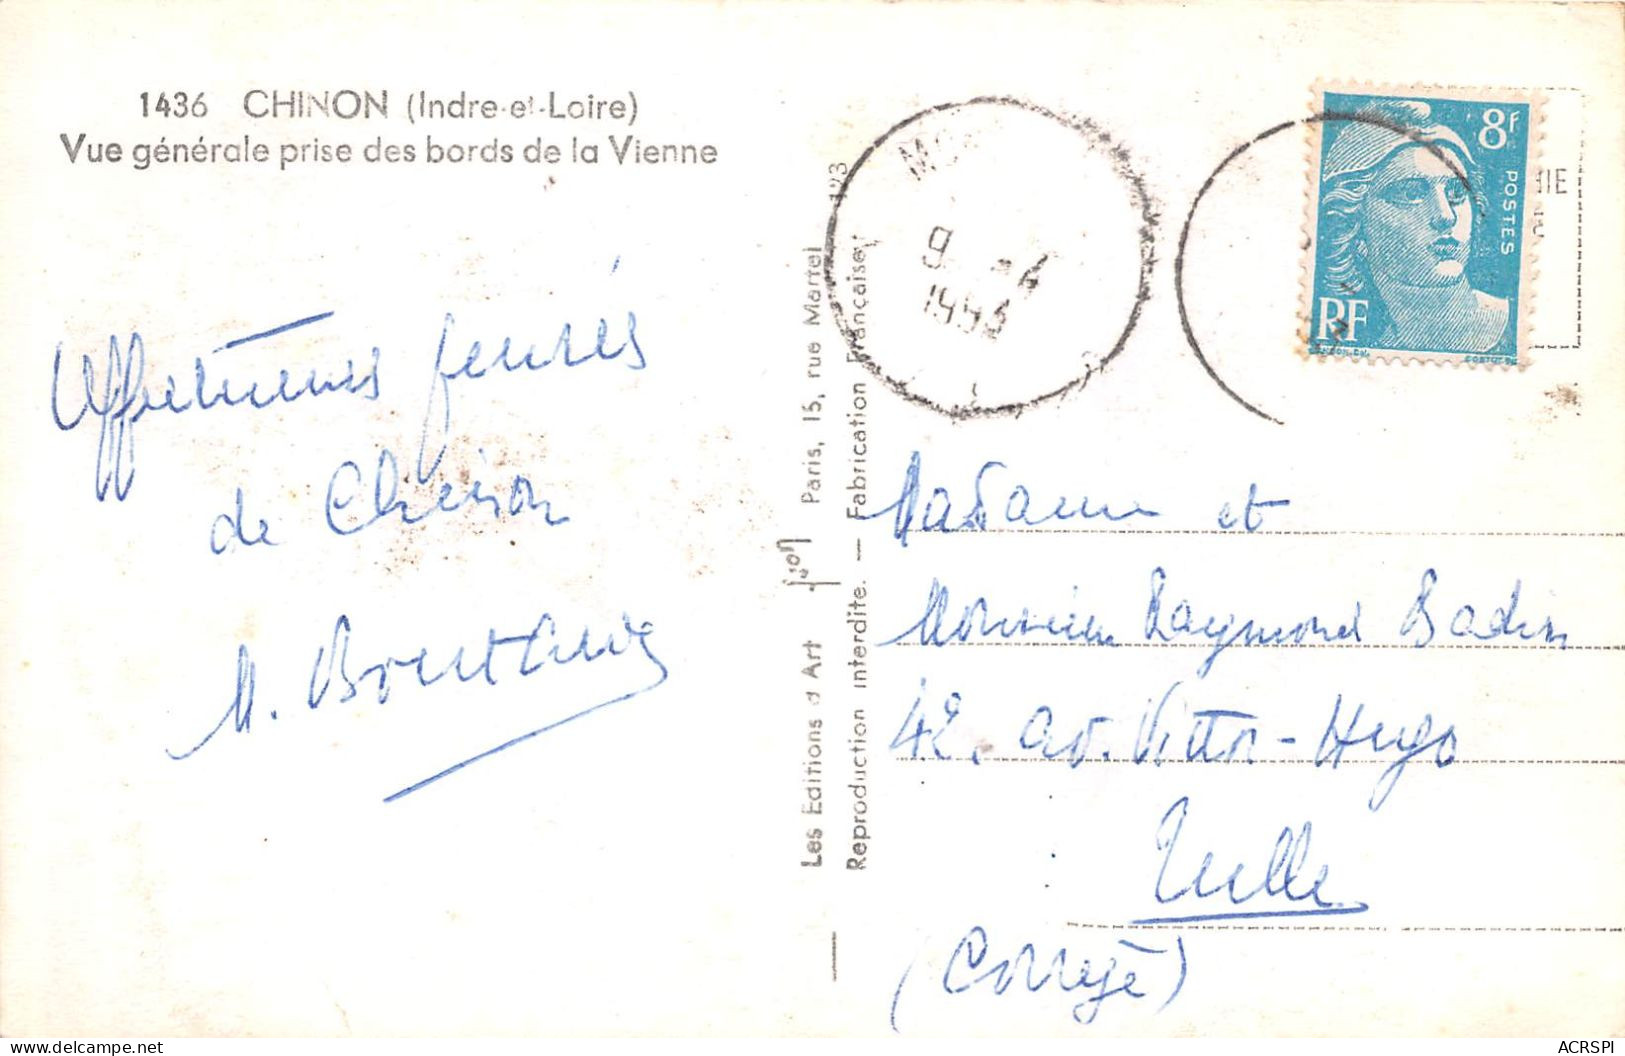 1436 CHINON (Indre-et-Loire)
Vue générale prise des bords de la Vienne
Affectueuses pensées
de Chinon
M.
Les Editions d'Art Yvon Paris, 15, rue Martel
Reproduction interdite. — Fabrication Française
123
9 -4
1953
8F
POSTES
RF
Madame et
Monsieur Raymond Badin
42, av. Victor-Hugo
Tulle
(Corrèze)
ACRSPI